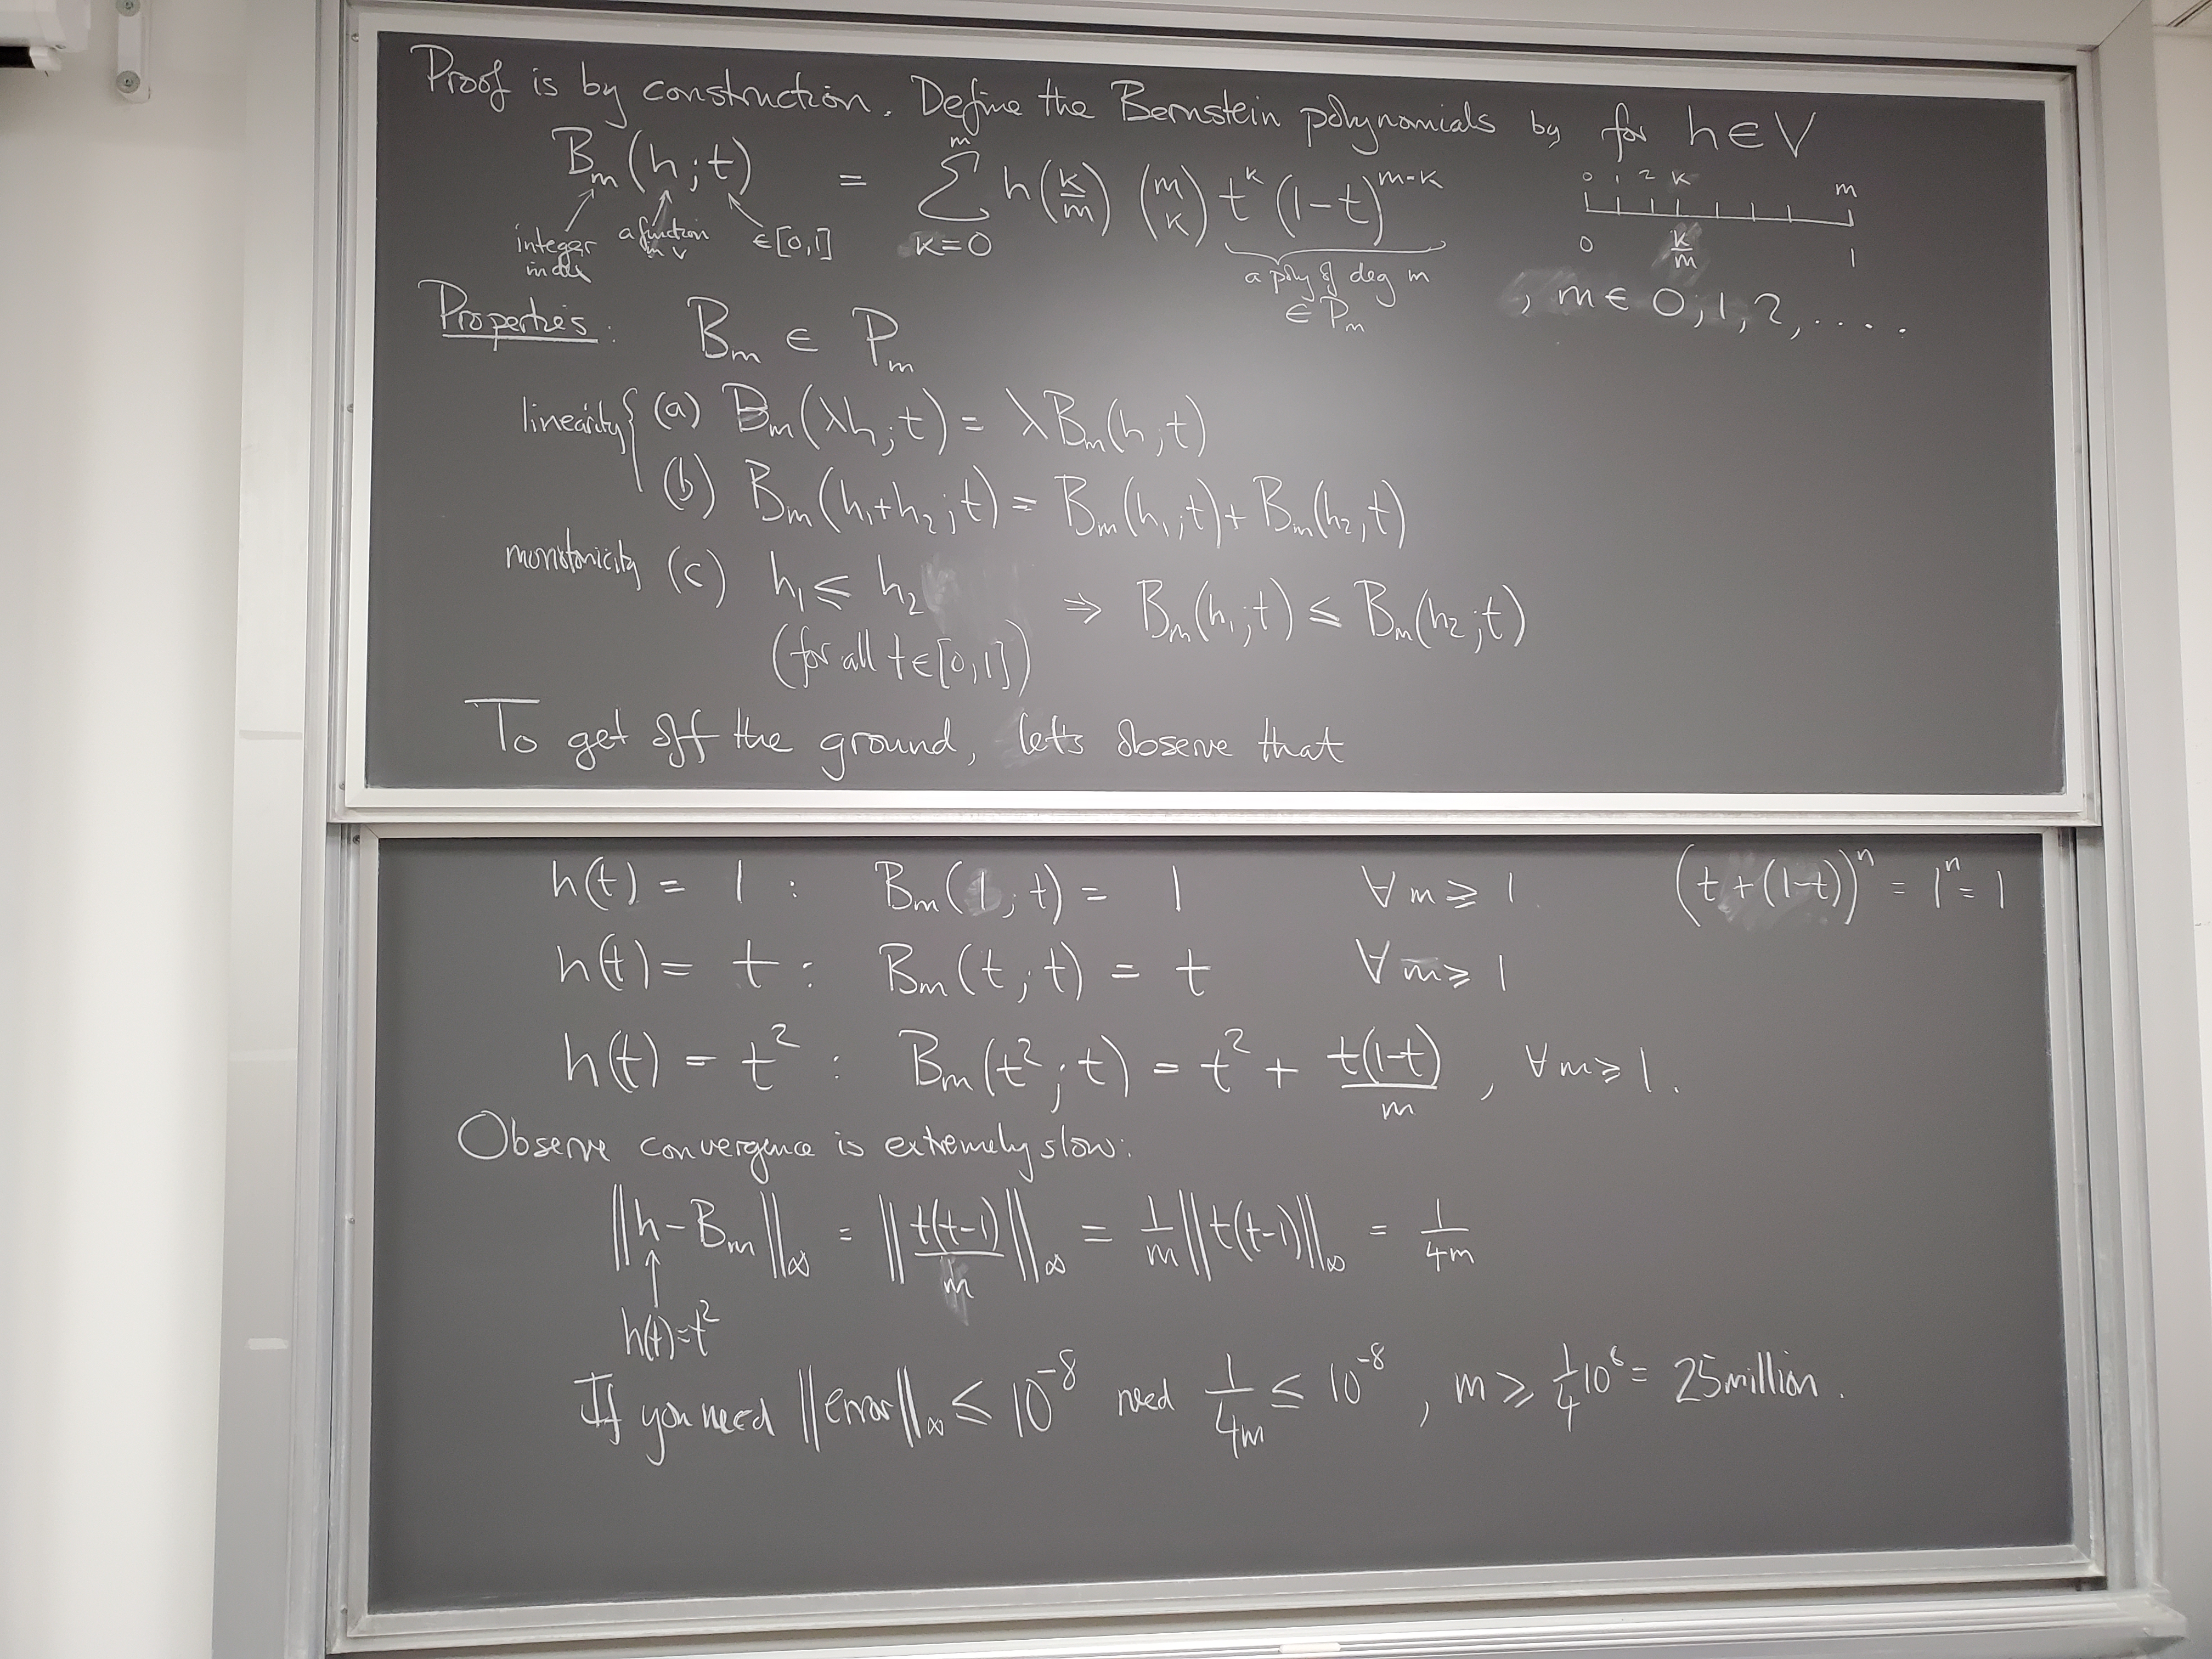 Proof is by construction. Define the Bernstein polynomials by for h ∈ V
B_m(h; t) = ∑_{k=0}^{m} h(k/m) (m choose k) t^k (1-t)^{m-k}
0 1 2 k m
0 k/m 1
integer index
a function in V
∈ [0,1]
a poly of deg m
∈ P_m
, m ∈ 0, 1, 2, ....
Properties: B_m ∈ P_m
linearity { (a) B_m(λh; t) = λB_m(h; t)
(b) B_m(h_1+h_2; t) = B_m(h_1; t) + B_m(h_2, t)
monotonicity (c) h_1 ≤ h_2 ⇒ B_m(h_1; t) ≤ B_m(h_2; t)
(for all t ∈ [0,1])
To get off the ground, let's observe that
h(t) = 1 : B_m(1; t) = 1 ∀ m ≥ 1. (t + (1-t))^n = 1^n = 1
h(t) = t : B_m(t; t) = t ∀ m ≥ 1
h(t) = t^2 : B_m(t^2; t) = t^2 + t(1-t)/m , ∀ m ≥ 1.
Observe convergence is extremely slow:
||h - B_m||_∞ = ||t(t-1)/m||_∞ = 1/m ||t(t-1)||_∞ = 1/4m
h(t)=t^2
If you need ||error||_∞ ≤ 10^{-8} need 1/4m ≤ 10^{-8} , m ≥ 1/4 10^8 = 25 million.